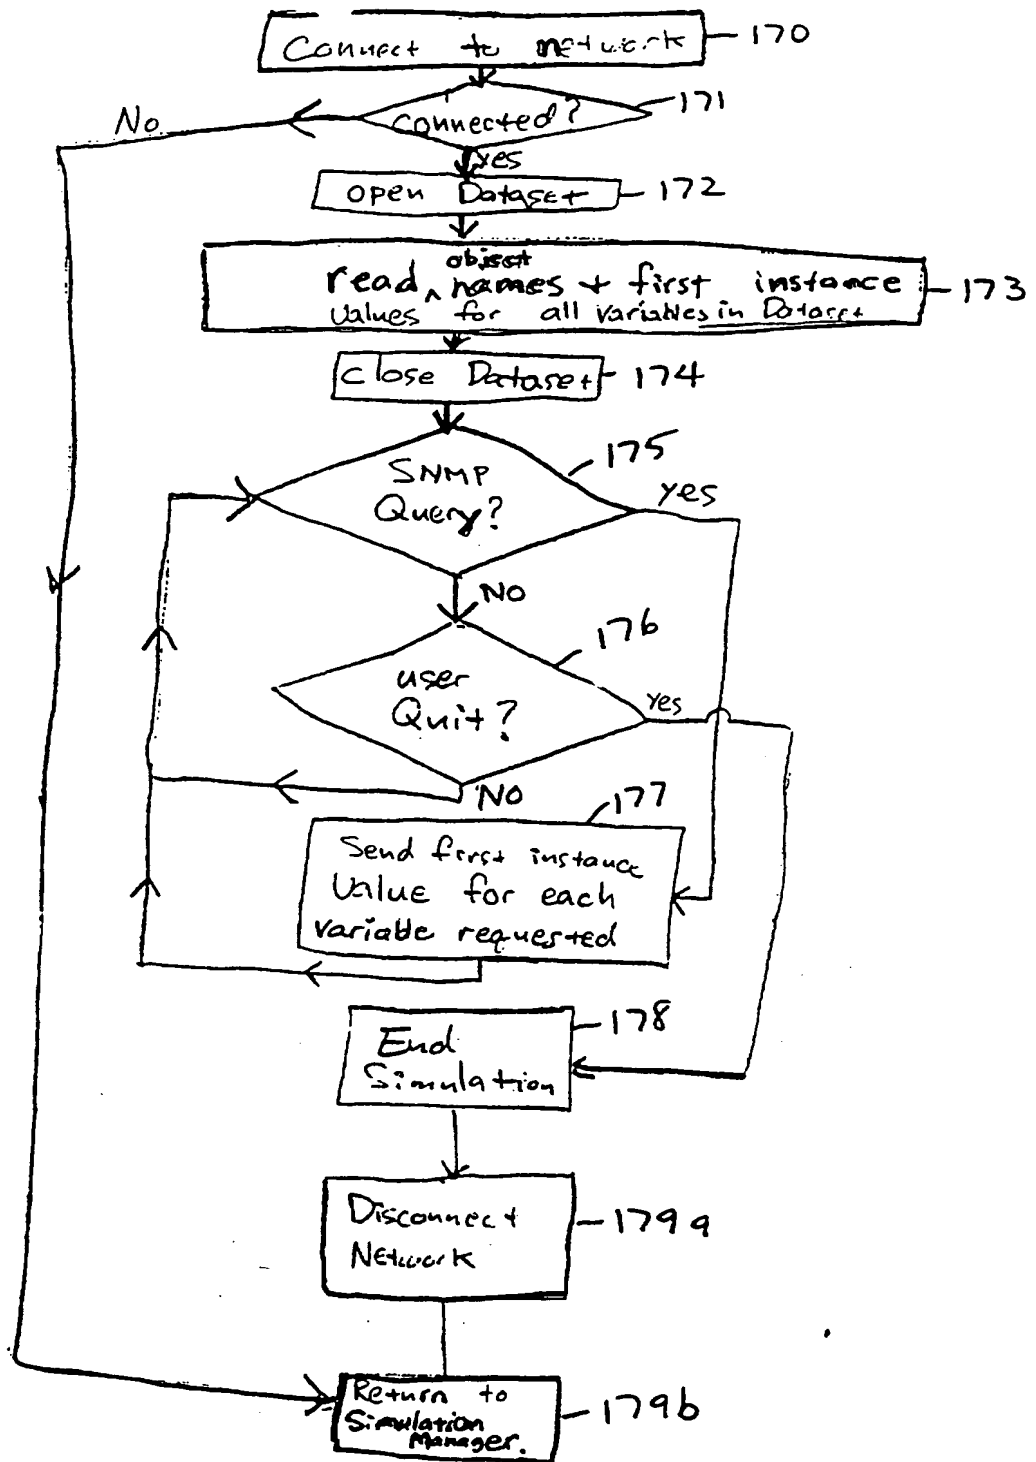 Connect to network
170
171
connected?
No
yes
open Dataset
172
object
read ^ names + first instance
values for all variables in Dataset
173
close Dataset
174
175
SNMP
Query?
yes
NO
176
user
Quit?
yes
NO
177
Send first instance
value for each
variable requested
178
End
Simulation
Disconnect
Network
179a
Return to
Simulation
Manager.
179b